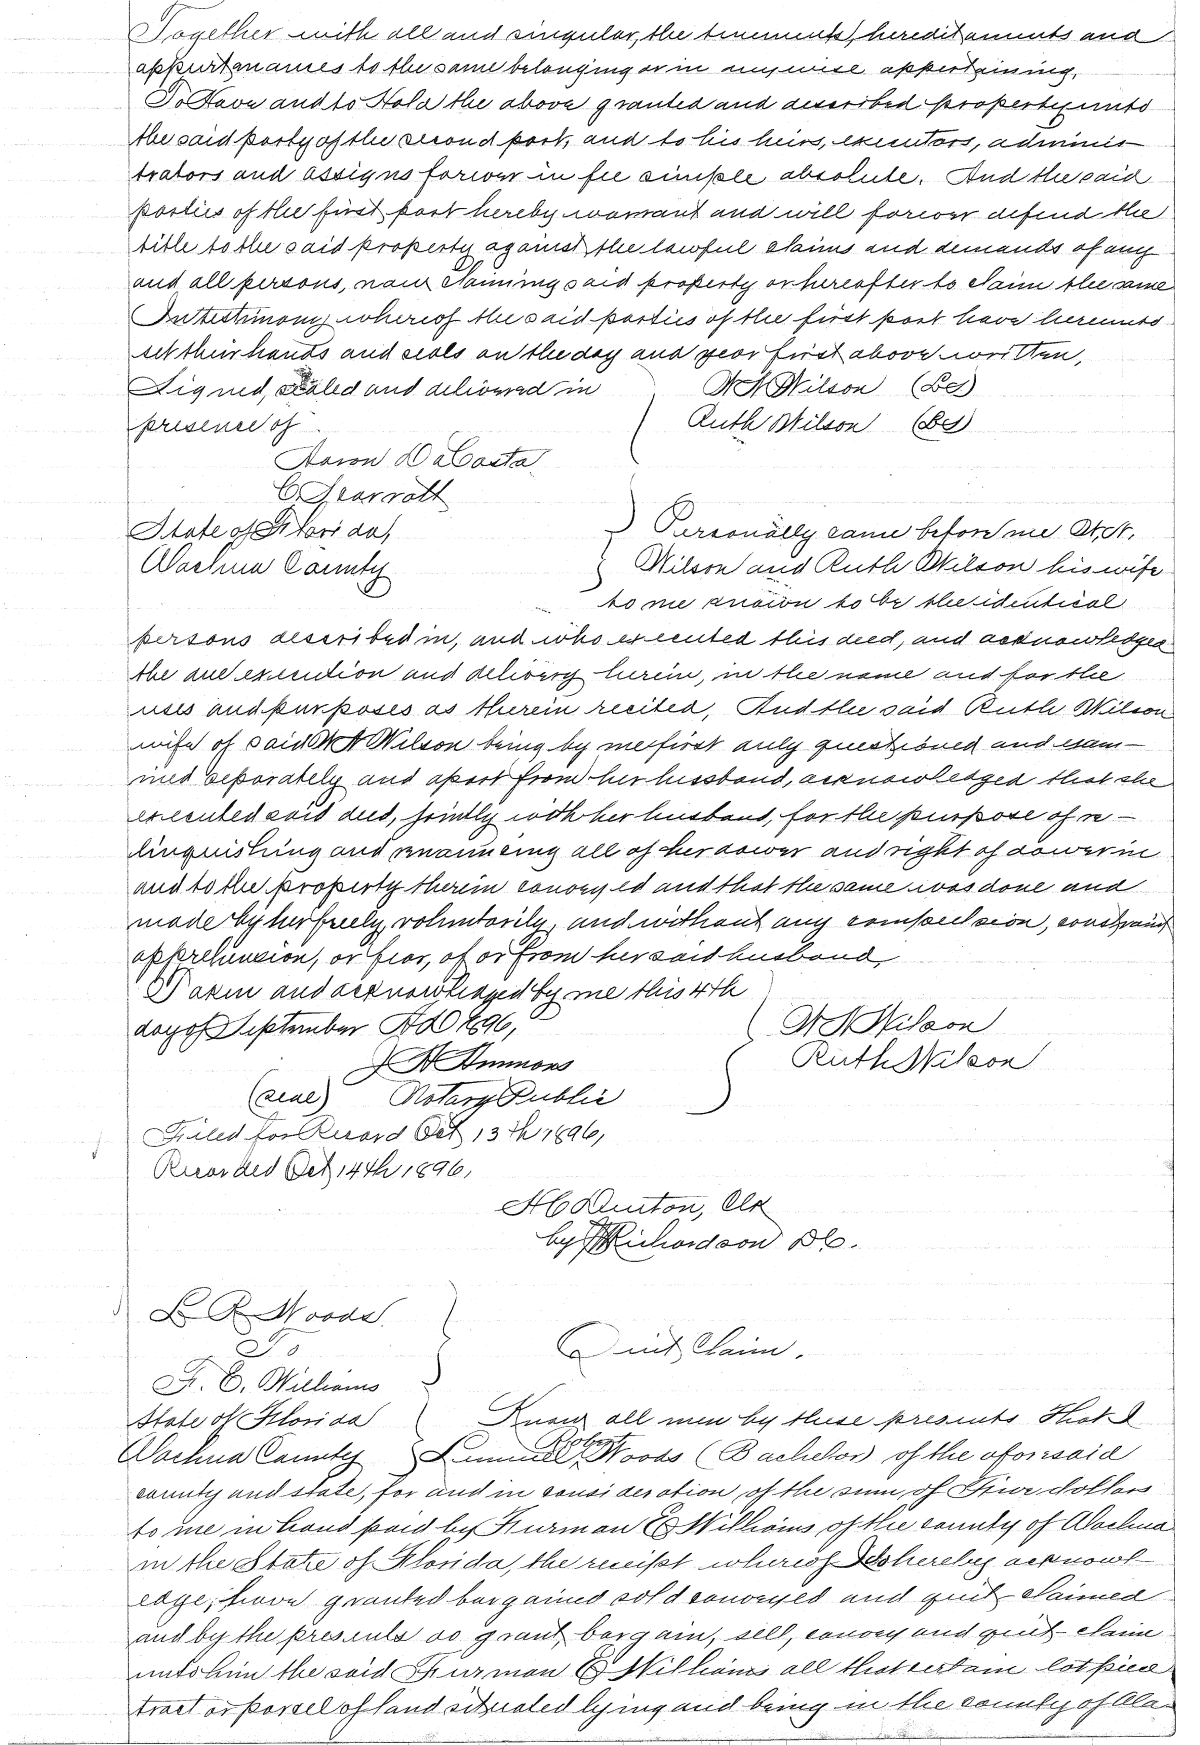 Together with all and singular, the tenements, hereditaments and
appurtenances to the same belonging or in anywise appertaining.
To Have and to Hold the above granted and described property unto
the said party of the second part, and to his heirs, executors, adminis-
trators and assigns forever in fee simple absolute. And the said
parties of the first part hereby warrant and will forever defend the
title to the said property against the lawful claims and demands of any
and all persons, now claiming said property or hereafter to claim the same
In testimony whereof the said parties of the first part have hereunto
set their hands and seals on the day and year first above written,
Signed, sealed and delivered in Wilson
presence of Ruth Wilson
Aaron DaCosta
C.
State of Florida, Personally came before me
Alachua County Wilson and Ruth Wilson his wife
to me known to be the identical
persons described in, and who executed this deed, and acknowledged
the due execution and delivery herein, in the name and for the
uses and purposes as therein recited, And the said Ruth Wilson
wife of said Wilson being by me first duly questioned and exam-
ined separately and apart from her husband, acknowledged that she
executed said deed, jointly with her husband, for the purpose of re-
linquishing and renouncing all of her dower and right of dower in
and to the property therein conveyed and that the same was done and
made by her freely, voluntarily, and without any compulsion, constraint
apprehension, or fear, of or from her said husband,
Taken and acknowledged by me this 4th
day of September AD 1896, Wilson
Ammons Ruth Wilson
(seal) Notary Public
Filed for Record Oct 13th 1896,
Recorded Oct 14th 1896,
H C Denton, Clk
by Richardson DC.
L R Woods
To Quit Claim.
F. E. Williams
State of Florida Know all men by these presents that I
Alachua County Lemuel Robert Woods (Bachelor) of the aforesaid
county and state, for and in consideration of the sum of Five dollars
to me in hand paid by Furman E Williams of the county of Alachua
in the State of Florida, the receipt whereof I do hereby acknowl-
edge, have granted bargained sold conveyed and quit claimed
and by the presents do grant, bargain, sell, convey and quit claim
unto him the said Furman E Williams all that certain lot piece
tract or parcel of land situated lying and being in the county of Ala-